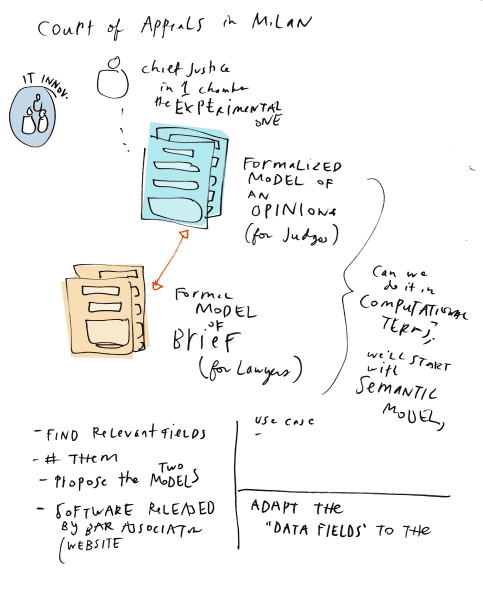 Court of Appeals in Milan
IT INNOV.
chief Justice
in 1 chamber
the EXPERIMENTAL
ONE
FORMALIZED
MODEL OF
AN
OPINIONS
(for Judges)
FORMAL
MODEL
OF
Brief
(for Lawyers)
Can we
do it in
COMPUTATIONAL
TERMS,
we'll START
with
SEMANTIC
MODEL,
- FIND Relevant FIELDS
- # THEM
- Propose the TWO MODELS
- SOFTWARE RELEASED
BY BAR ASSOCIATOR
(WEBSITE
USE CASE
-
ADAPT THE
"DATA FIELDS" TO THE